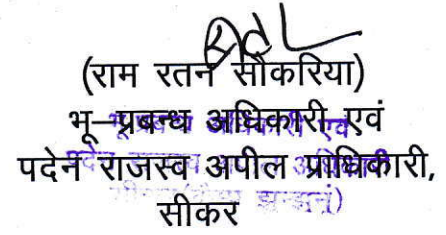 (राम रतन सौंकरिया)
भू–प्रबन्ध अधिकारी एवं
पदेन राजस्व अपील प्राधिकारी,
सीकर